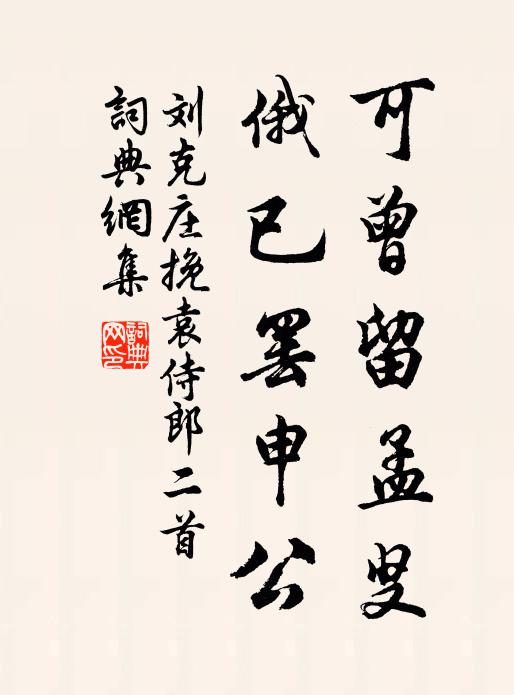 可曾留孟叟
俄已罢申公
刘克庄挽袁侍郎二首
詞典網集
詞典网印